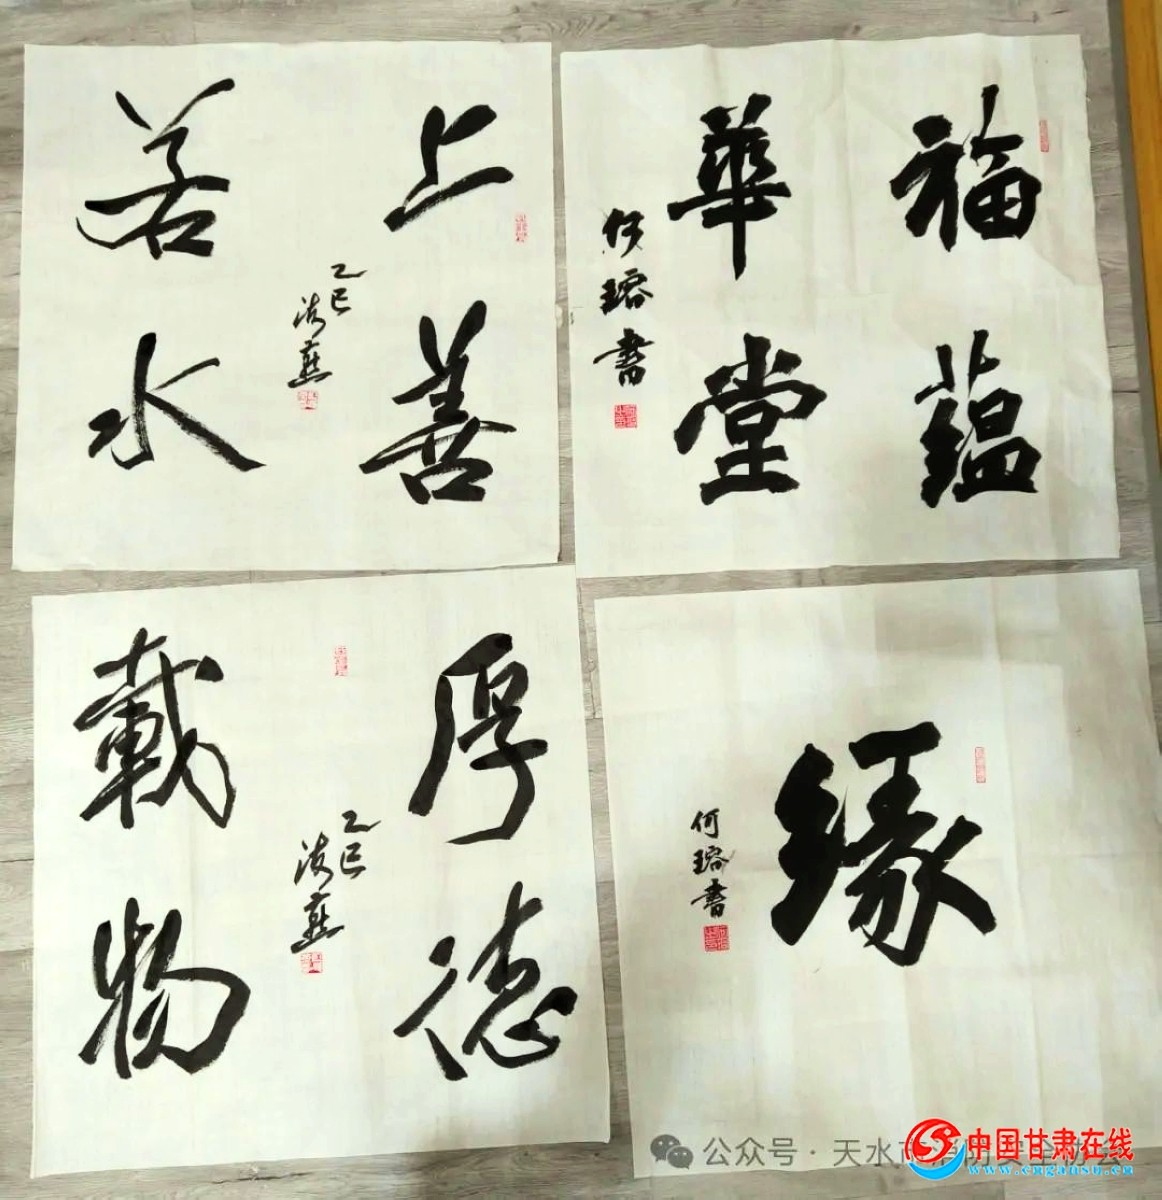 上善
若水
乙巳
海燕
福蘊
華堂
何瑢書
厚德
載物
乙巳
海燕
緣
何瑢書
公众号 · 天水市
中国甘肃在线
www.cngansu.cn